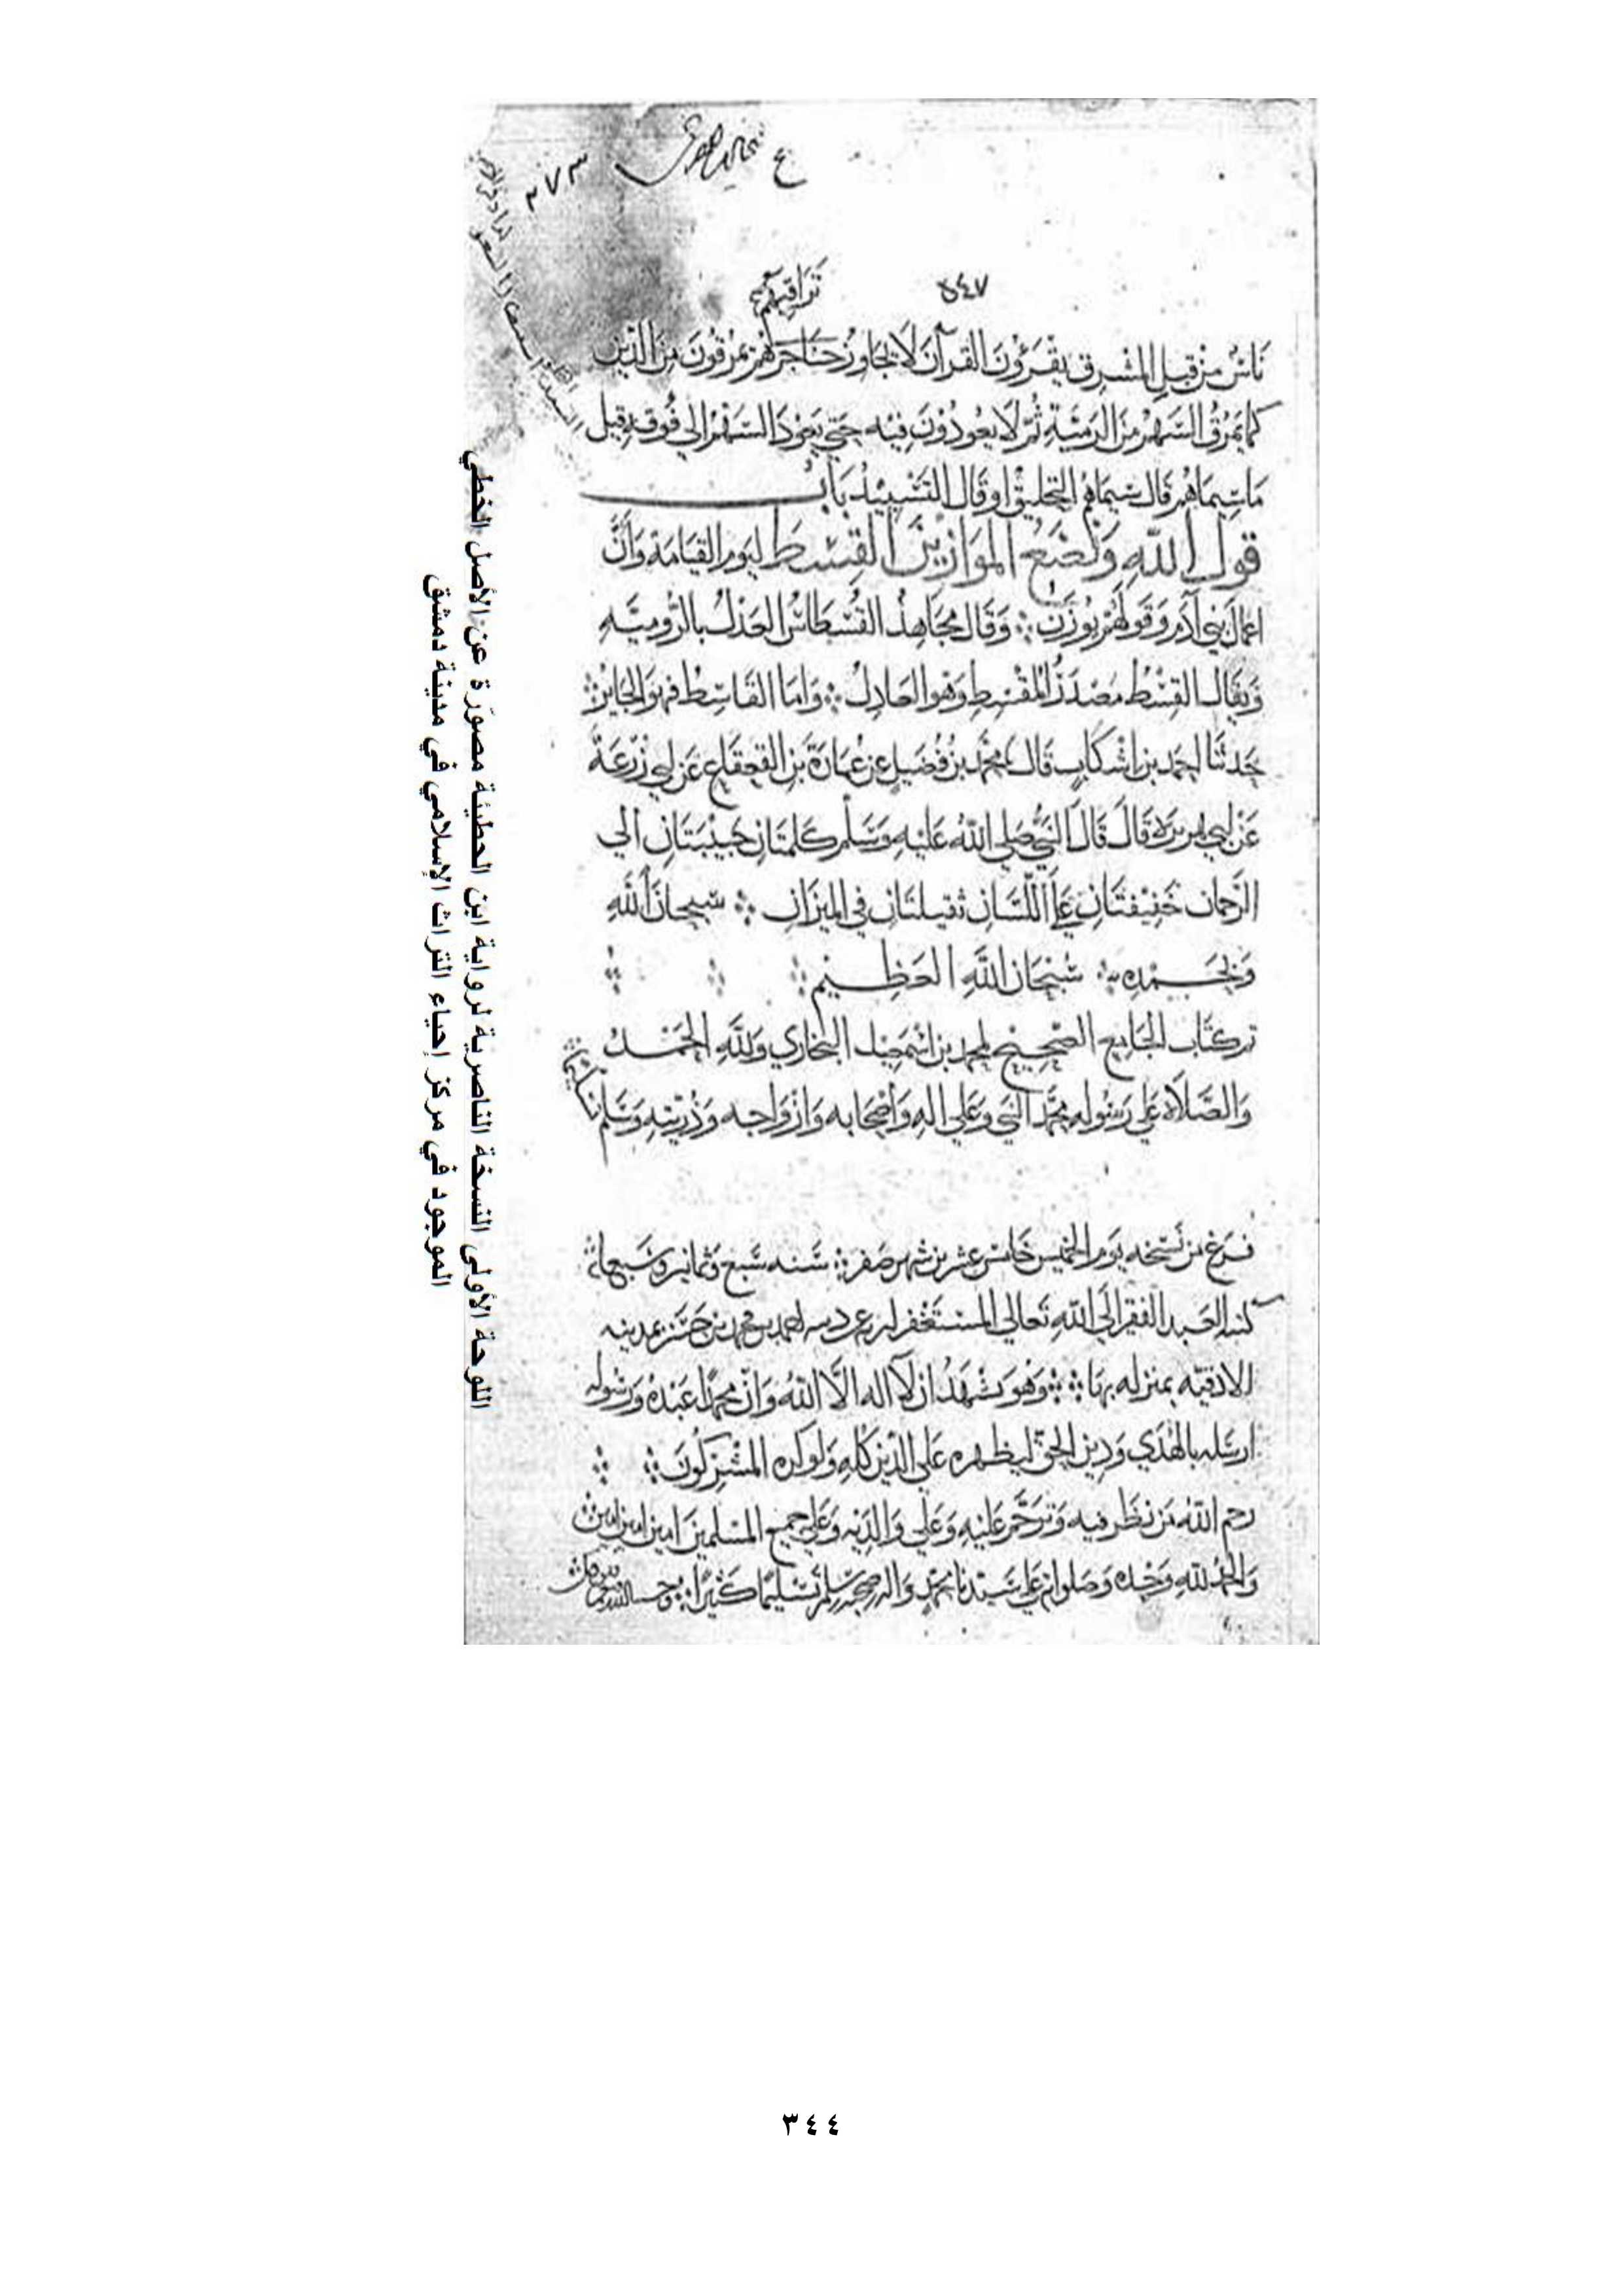 ٢٧٣
٥٤٧
تَرَاقِيَهُم
نَاسٌ مِنْ قِبَلِ المَشرِق يَقْرَؤُنَ القرآنَ لَا يجَاوِزُ حنَاجرَهُمْ يَمرُقُونَ مِنَ الدّين
كما يَمرُقُ السَّهمُ مِنَ الرَّمِيَّةِ ثُمَّ لَا يَعُودُوْنَ فِيْهِ حَتّي يَعُوْدَ السَّهْمُ الي فُوقِهِ قيل
مَا سِيمَاهُم قال سِيْمَاهُمُ التحليقُ او قَال التَّسْبِيْدُ بَابُ
قول اللهِ وَنَضَعُ المَوَازِيْنَ القِسْطَ لِيَومِ القيَامَة وَاَنَّ
اعمالَ بَني آدَم وَقَولَهُمْ يُوزَن وَقَال مجَاهِدٌ القُسْطَاسُ العَدْلُ بالرُّوميَّه
وَيقَال القِسْطُ مَصْدَرُ المُقْسِطِ وَهو العَادِلُ وَامَا القَاسِطُ فهوَ الجَايرُ
حَدثَنَا احمد بن اشْكابٍ قَالَ محمَّد بن فُضَيلٍ عن عُمَارَةَ بن القَعقَاعِ عَن ابي زُرْعَةَ
عَنْ ابي هريرة قَالَ قَالَ النَّبيُّ صَلي اللهُ عَلَيْهِ وَسَلَّم كَلمتَانِ حَبيْبَتَانِ الَي
الرَّحمان خَفِيفتَانِ عَلَى اللِّسَانِ ثقيلتَانِ في الميزَانِ سُبحَانَ اللَّهِ
وَبحَمْدِهِ سُبْحَانَ اللَّهِ العَظِيْم
تم كتَاب الجَامِع الصَّحِيْح لمحمد بن اسْمعيل البُخاري وَللَّهِ الحَمْدُ
وَالصَّلَاة عَلي رَسُوله محمَّد النَبي وعَلي الهِ وَاَصْحَابه وَاَزْوَاجه وَذُرّيتِهِ وَسَلم تسليمًا
فرغ من نَسْخه يَوم الخميس خَامس عشر من شهر صَفر سَنه سَبْع وَثمانين وسَبعمائة
كتبه العَبد الفقير اليَ اللهِ تَعالي المستَغفر لربه عن ذنبه احمد بن محمد بن بمدينه
الاذقيّه بمنزله بهَا وَهوَ يَشْهَدُ ان لَا اله الَّا اللهُ وَانَّ محمدًا عَبْدُهُ وَرَسُوله
ارسَله بالهُدَي وَدِيْن الحقِ ليظهره عَلي الدّين كُلّهِ وَلَو كره المشْركُونَ
رحم اللهُ مَن نظَر فيه وَتَرَحَّم عَليْهِ وَعَلي وَالدَيْهِ وَعَلي جميع المسْلمينَ امين امين امين
وَالحَمْدُ للهِ وَحْدهُ وَصَلواته عَلي سَيدنا محمَّدٍ وَاله وصحبه وسلم تَسْليْمًا كَثيْرًا وحسبنا الله ونعم الوكيل
اللوحة الأولى النسخة الناصرية لرواية ابن الحطيئة مصوَرة عن الأصل الخطي
الموجود في مركز إحياء التراث الإسلامي في مدينة دمشق
٣٤٤